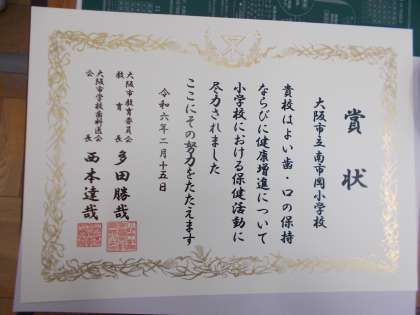 賞状
大阪市立南市岡小学校
貴校はよい歯・口の保持
ならびに健康増進について
小学校における保健活動に
尽力されました
ここにその努力をたたえます
令和六年二月十五日
大阪市教育委員会
教育長 多田勝哉
大阪市学校歯科医会
会長 西本達哉